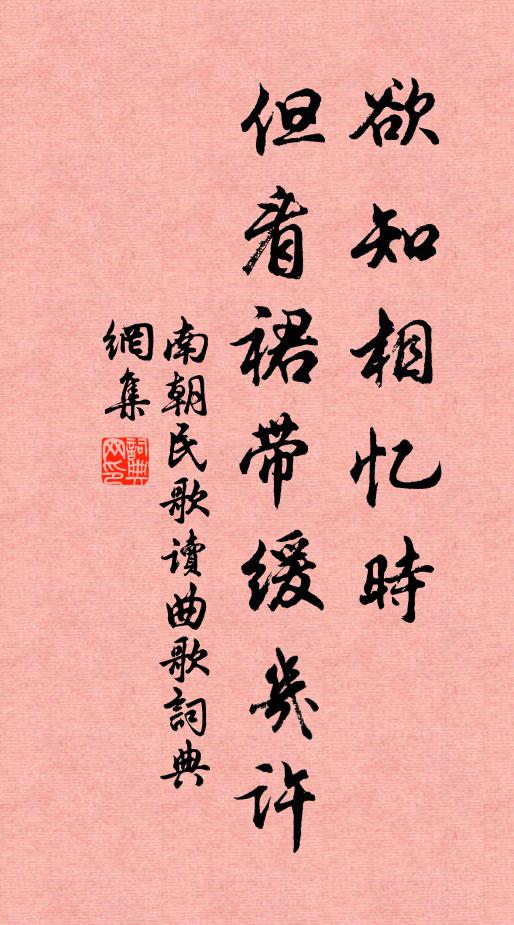 欲知相忆時
但看裙带緩幾許
南朝民歌讀曲歌詞典
網集
詞典
网印